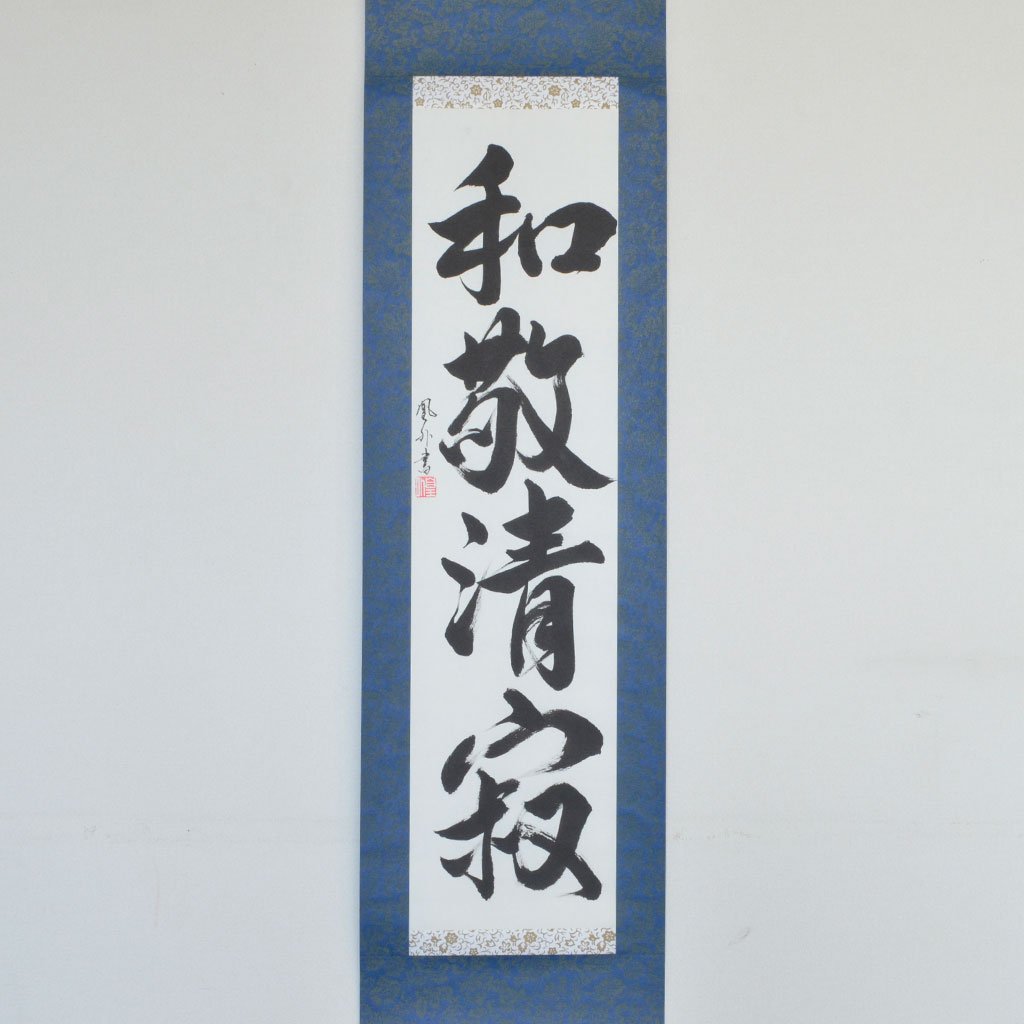 和敬清寂
凰外書